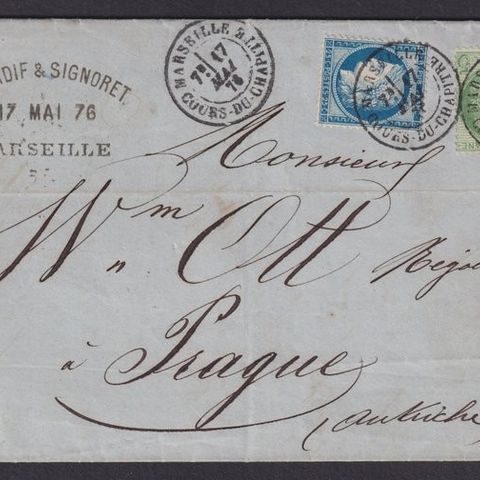 DIF & SIGNORET.
17 MAI 76
ARSEILLE
MARSEILLE
COURS-DU-CHAPITRE
17
MAI
76
COURS-DU-CHAPITRE
Monsieur
Wm Ott Négo
à Prague
(Autriche